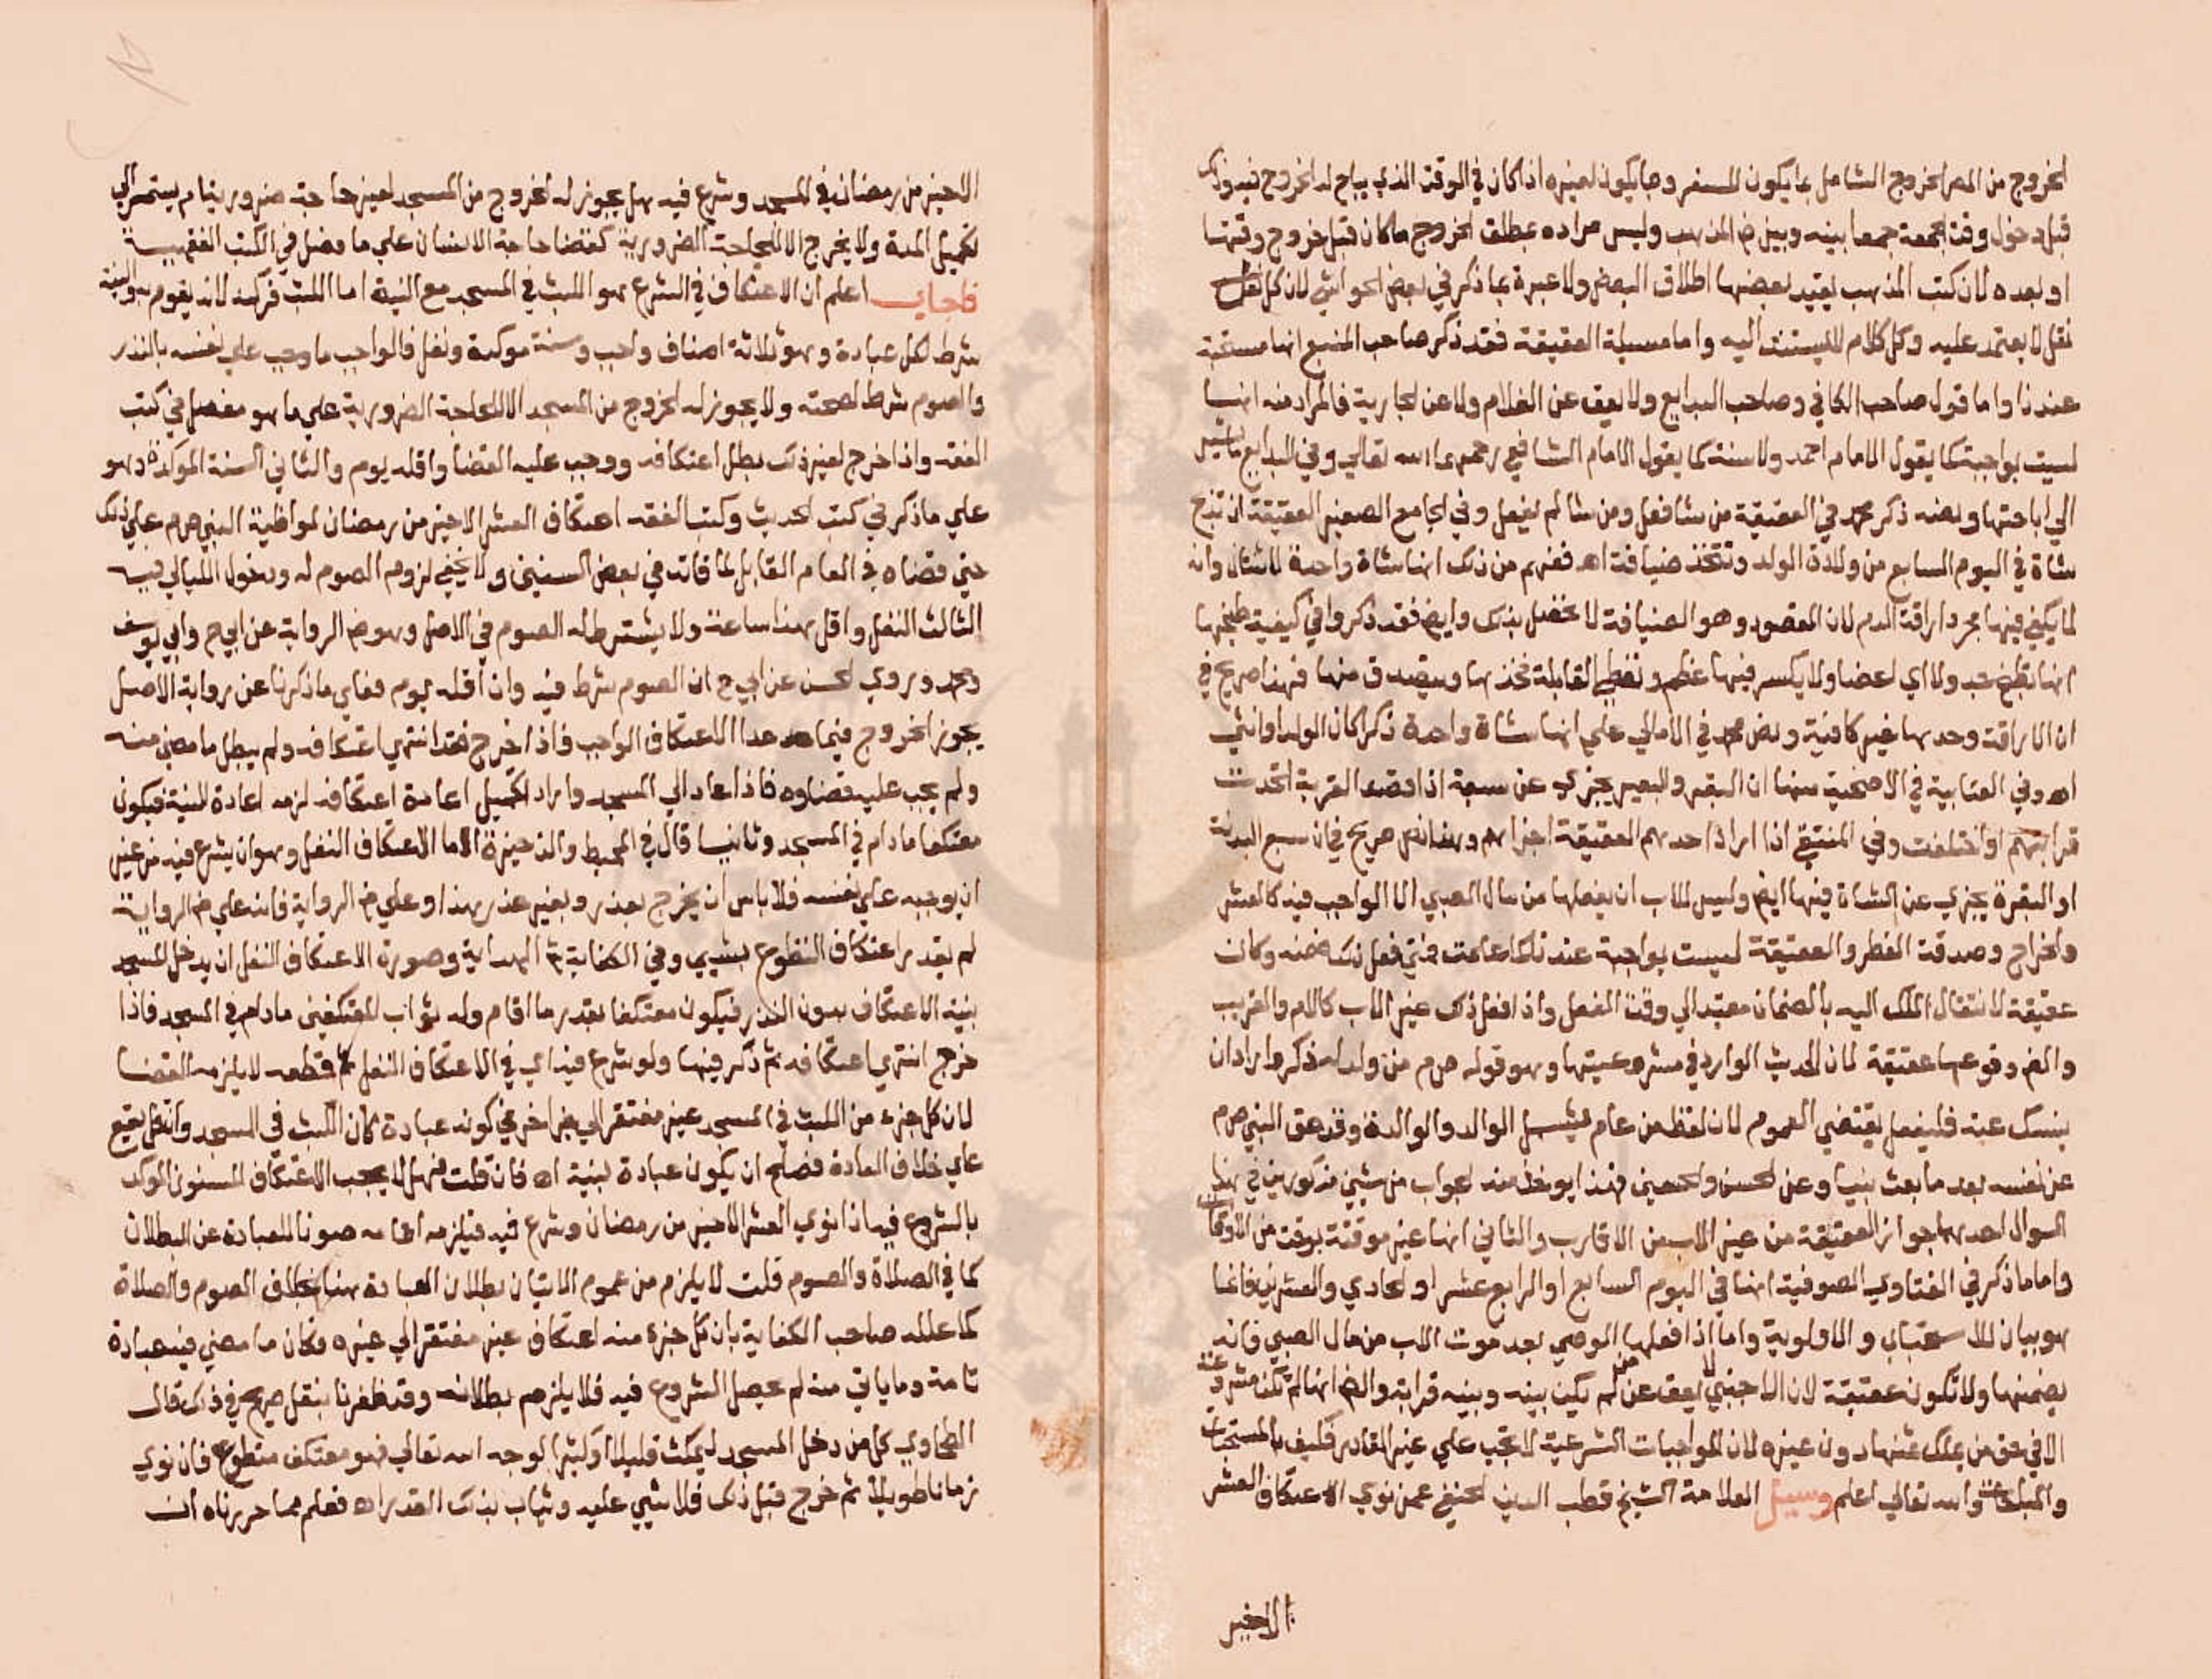 الخروج من المصر الخروج الشامل بما يكون للسفر وبما يكون لغيره اذا كان في الوقت الذي يباح له الخروج فيه وذلك
قبل دخول وقت الجمعة جمعا بينه وبين نص المذهب وليس مراده بمطلق الخروج ما كان قبل خروج وقتها
او بعده لان كتب المذهب يقيد بعضها اطلاق البعض ولا عبرة بما ذكر في بعض الحواشي لان كل نقل
نقل لا يعتمد عليه وكل كلام لا يستند اليه واما مسيلة العقيقة فقد ذكر صاحب المنبع انها مستحبة
عندنا واما قول صاحب الكافي وصاحب البدايع ولا يعق عن الغلام ولا عن الجارية فالمراد منه انها
ليست بواجبة كما يقول الامام احمد ولا سنة كما يقول الامام الشافعي رحمهما الله تعالي وفي البدايع ما يشير
الي اباحتها ونصه ذكر محمد في العقيقة من شا فعل ومن شا لم يفعل وفي الجامع الصغير العقيقة ان تذبح
شاة في اليوم السابع من ولادة الولد وتتخذ ضيافة اه ففهم من ذلك انها شاة واحدة لا شتان وانه
لا يكفي فيها مجرد اراقة الدم لان المقصود وهو الضيافة لا تحصل بذلك وايضا فقد ذكروا في كيفية طبخها
انها تطبخ جدولا اي اعضا ولا يكسر فيها عظم وتعطي القابلة فخذها ويتصدق منها فهذا صريح في
ان الاراقة وحدها غير كافية ونص محمد في الامالي علي انها شاة واحدة ذكرا كان الولد او انثي
اه وفي العتابية في الاضحية منها ان البقر والبعير يجزي عن سبعة اذا قصد القربة اتحدت
قرابتهم او اختلفت وفي المنتقي اذا اراد احدهم العقيقة اجزاهم وهذا نص صريح في ان سبع البدنة
او البقرة يجزي عن الشاة فيها ايض وليس للاب ان يفعلها من مال الصبي الا الواجب فيه كالعشر
والخراج وصدقة الفطر والعقيقة ليست بواجبة عندنا كما علمت فمتي فعل ذلك ضمنه وكان
عقيقة لانتقال الملك اليه بالضمان معتبدا الي وقت الفعل واذا فعل ذلك غير الاب كالام والقريب
والض وقوعها عقيقة لان الحديث الوارد في مشروعيتها وهو قوله صلم من ولد له ذكر واراد ان
ينسك عنه فليفعل يقتضي العموم لان لفظ من عام يشمل الوالد والوالدة وقد عق النبي صلم
عن نفسه بعد ما بعث نبيا وعن الحسن والحسين فهذا يوخذ منه الجواب من شيين مذكورين في هذا
السوال احدهما جواز العقيقة من غير الاب من الاقارب والثاني انها غير موقتة بوقت من الاوقات
واما ما ذكر في الفتاوي الصوفية انها في اليوم السابع او الرابع عشر او الحادي والعشرين فانما
هو بيان للاستحباب والاولوية واما اذا فعلها الوصي بعد موت الاب من مال الصبي فانه
يضمنها ولا تكون عقيقة لان الاجنبي لا يعق عن من لم يكن بينه وبينه قرابة والض انها لم تكن مشروعة
الا في حق من يملك ثمنها دون غيره لان الواجبات الشرعية لا تجب علي غير القادر فكيف بالمستحبات
والمباحات والله تعالي اعلم وسيل العلامة الشيخ قطب الدين الحنفي عمن نوي الاعتكاف العشر
الاخير
الاخير من رمضان في المسجد وشرع فيه هل يجوز له الخروج من المسجد لغير حاجة ضرورية ام يستمر الي
تكميل المدة ولا يخرج الا للحاجة الضرورية كقضا حاجة الانسان علي ما فصل في الكتب الفقهية
فاجاب اعلم ان الاعتكاف في الشرع هو اللبث في المسجد مع النية اما اللبث فركنه لانه يقوم به والنية
شرط لكل عبادة وهو ثلاثة اصناف واجب وسنة موكدة ونفل فالواجب ما وجب علي نفسه بالنذر
والصوم شرط لصحته ولا يجوز له الخروج من المسجد الا للحاجة الضرورية علي ما هو مفصل في كتب
الفقه واذا خرج لغير ذلك بطل اعتكافه ووجب عليه القضا واقله يوم والثاني السنة الموكدة وهو
علي ما ذكر في كتب الحديث وكتب الفقه اعتكاف العشر الاخير من رمضان لمواظبة النبي صلم علي ذلك
حتي قضاه في العام القابل لما فاته في بعض السنين ولا يخفي لزوم الصوم له ودخول الليالي فيه
الثالث النفل واقل هذا ساعة ولا يشترط له الصوم في الاصل وهو ض الرواية عن ابي ح وابي يوسف
ومحمد وروي الحسن عن ابي ح ان الصوم شرط فيه وان اقله يوم فعلي ما ذكرنا عن رواية الاصل
يجوز الخروج فيما عدا الاعتكاف الواجب فاذا خرج فقد انتهي اعتكافه ولم يبطل ما مضي منه
ولم يجب عليه قضاوه فاذا عاد الي المسجد واراد تكميل اعادة اعتكافه لزمه اعادة النية فيكون
معتكفا ما دام في المسجد وثانيا قال في المحيط والذخيرة اما الاعتكاف النفل وهو ان يشرع فيه من غير
ان يوجبه علي نفسه فلا باس ان يخرج بعذر وبغير عذر هذا وعلي ض الرواية فانه علي ض الرواية
لم يقدر اعتكاف التطوع بشيي وفي الكفاية ش الهداية وصورة الاعتكاف النفل ان يدخل المسجد
بنية الاعتكاف بدون النذر فيكون معتكفا بقدر ما اقام وله ثواب المعتكفين ما دام في المسجد فاذا
خرج انتهي اعتكافه ثم ذكر فيها ولو شرع فيه اي في الاعتكاف النفل ثم قطعه لا يلزمه القضا
لان كل جزء من اللبث في المسجد غير مفتقر الي جزء اخر في كونه عبادة لان اللبث في المسجد وان قل يقع
علي خلاف العادة فصلح ان يكون عبادة لنية اه فان قلت فهل لا يجب الاعتكاف المسنون الموكد
بالشروع فيه اذا نوي العشر الاخير من رمضان وشرع فيه فيلزمه اتمامه صونا للعبادة عن البطلان
كما في الصلاة والصوم قلت لا يلزم من عموم الاتيان بطلان العبادة هنا بخلاف الصوم والصلاة
كما علله صاحب الكفاية بان كل جزء منه اعتكاف غير مفتقر الي غيره فكان ما مضي فيه عبادة
تامة وما ياتي منه لم يحصل الشروع فيه فلا يلزم بطلانه وقد ظفرنا بنقل صريح في ذلك قال
الطحاوي كل من دخل المسجد ليمكث قليلا او كثيرا لوجه الله تعالي فهو معتكف متطوع فان نوي
زمانا طويلا ثم خرج قبل ذلك فلا شيي عليه ويثاب بذلك القدر اه فعلم مما حررناه ان